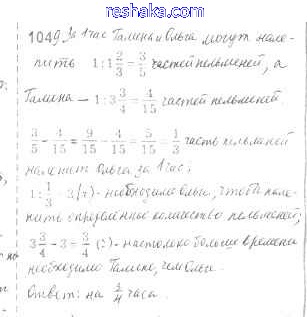 reshaka.com
1049 За 1 час Галина и Ольга могут нале-
пить 1:1 2/3 = 3/5 частей пельменей, а
Галина – 1:3 3/4 = 4/15 частей пельменей.
3/5 - 4/15 = 9/15 - 4/15 = 5/15 = 1/3 часть пельменей
налепит Ольга за 1 час;
1: 1/3 = 3 (ч) - необходимо Ольге, чтобы нале-
пить определенное количество пельменей;
3 3/4 - 3 = 3/4 (ч) - настолько больше времени
необходимо Галине, чем Ольге.
Ответ: на 3/4 часа.